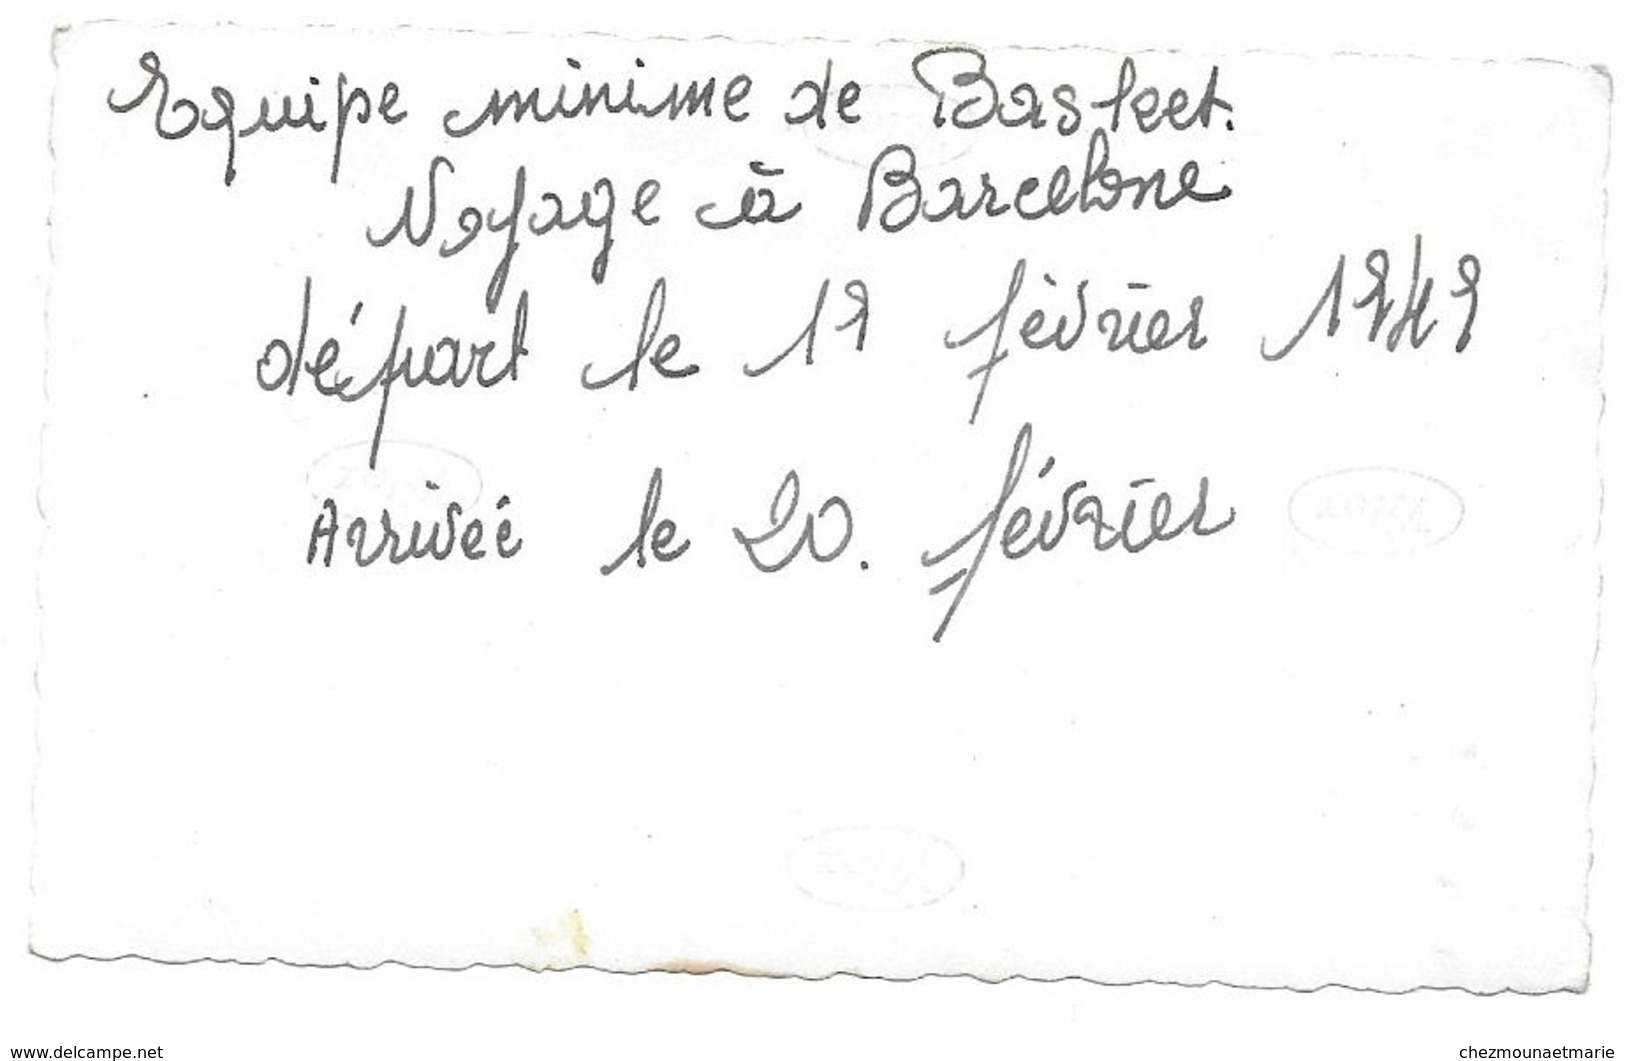 Equipe minime de Basket.
Voyage à Barcelone
départ le 19 février 1949
Arrivée le 20. février
www.delcampe.net
chezmounaetmarie